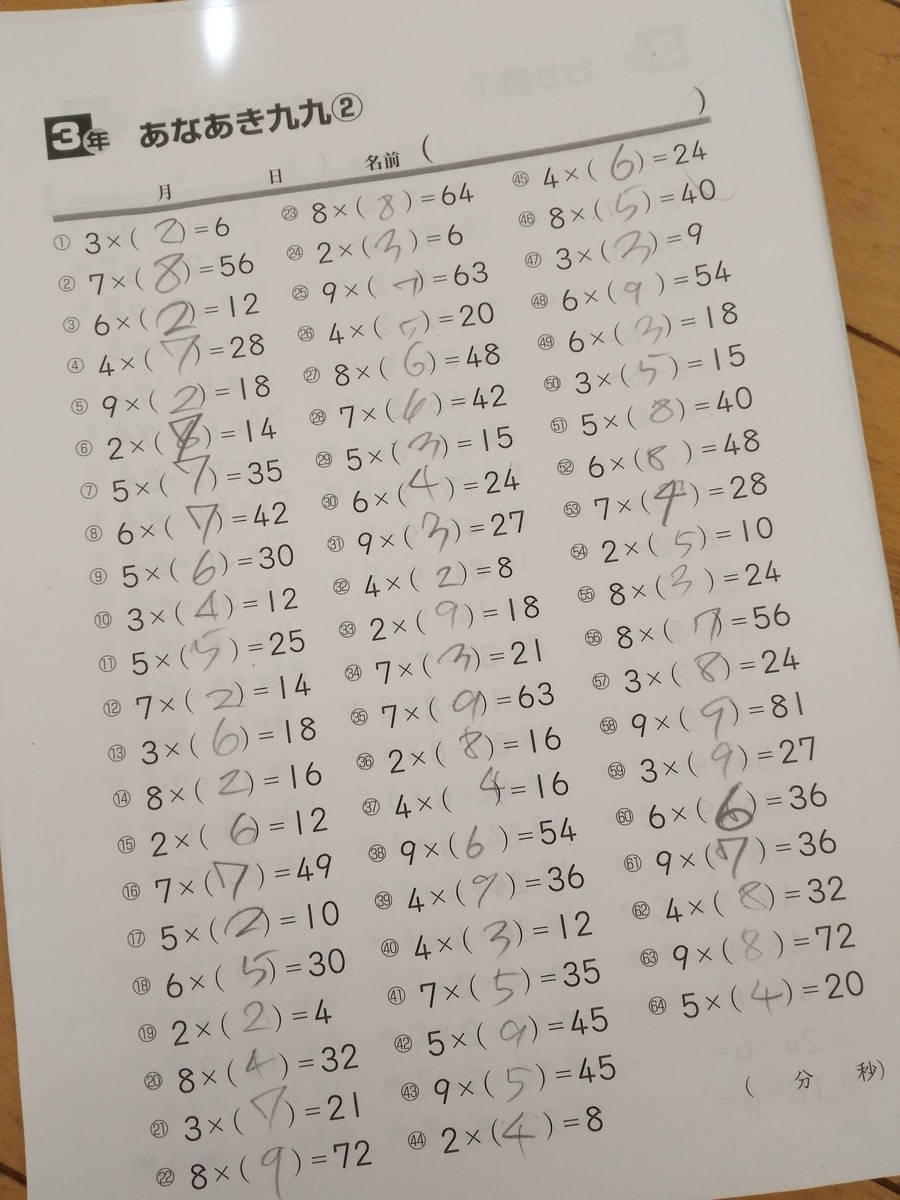 3年 あなあき九九②
月 日 名前 ( )
① 3×( 2 )=6
② 7×( 8 )=56
③ 6×( 2 )=12
④ 4×( 7 )=28
⑤ 9×( 2 )=18
⑥ 2×( )=14
⑦ 5×( 7 )=35
⑧ 6×( 7 )=42
⑨ 5×( 6 )=30
⑩ 3×( 4 )=12
⑪ 5×( 5 )=25
⑫ 7×( 2 )=14
⑬ 3×( 6 )=18
⑭ 8×( 2 )=16
⑮ 2×( 6 )=12
⑯ 7×( 7 )=49
⑰ 5×( 2 )=10
⑱ 6×( 5 )=30
⑲ 2×( 2 )=4
⑳ 8×( 4 )=32
㉑ 3×( 7 )=21
㉒ 8×( 9 )=72
㉓ 8×( 8 )=64
㉔ 2×( 3 )=6
㉕ 9×( 7 )=63
㉖ 4×( 5 )=20
㉗ 8×( 6 )=48
㉘ 7×( 6 )=42
㉙ 5×( 3 )=15
㉚ 6×( 4 )=24
㉛ 9×( 3 )=27
㉜ 4×( 2 )=8
㉝ 2×( 9 )=18
㉞ 7×( 3 )=21
㉟ 7×( 9 )=63
㊱ 2×( 8 )=16
㊲ 4×( 4 )=16
㊳ 9×( 6 )=54
㊴ 4×( 9 )=36
㊵ 4×( 3 )=12
㊶ 7×( 5 )=35
㊷ 5×( 9 )=45
㊸ 9×( 5 )=45
㊹ 2×( 4 )=8
㊺ 4×( 6 )=24
㊻ 8×( 5 )=40
㊼ 3×( 3 )=9
㊽ 6×( 9 )=54
㊾ 6×( 3 )=18
㊿ 3×( 5 )=15
51 5×( 8 )=40
52 6×( 8 )=48
53 7×( 4 )=28
54 2×( 5 )=10
55 8×( 3 )=24
56 8×( 7 )=56
57 3×( 8 )=24
58 9×( 9 )=81
59 3×( 9 )=27
60 6×( 6 )=36
61 9×( 7 )=36
62 4×( 8 )=32
63 9×( 8 )=72
64 5×( 4 )=20
( 分 秒)